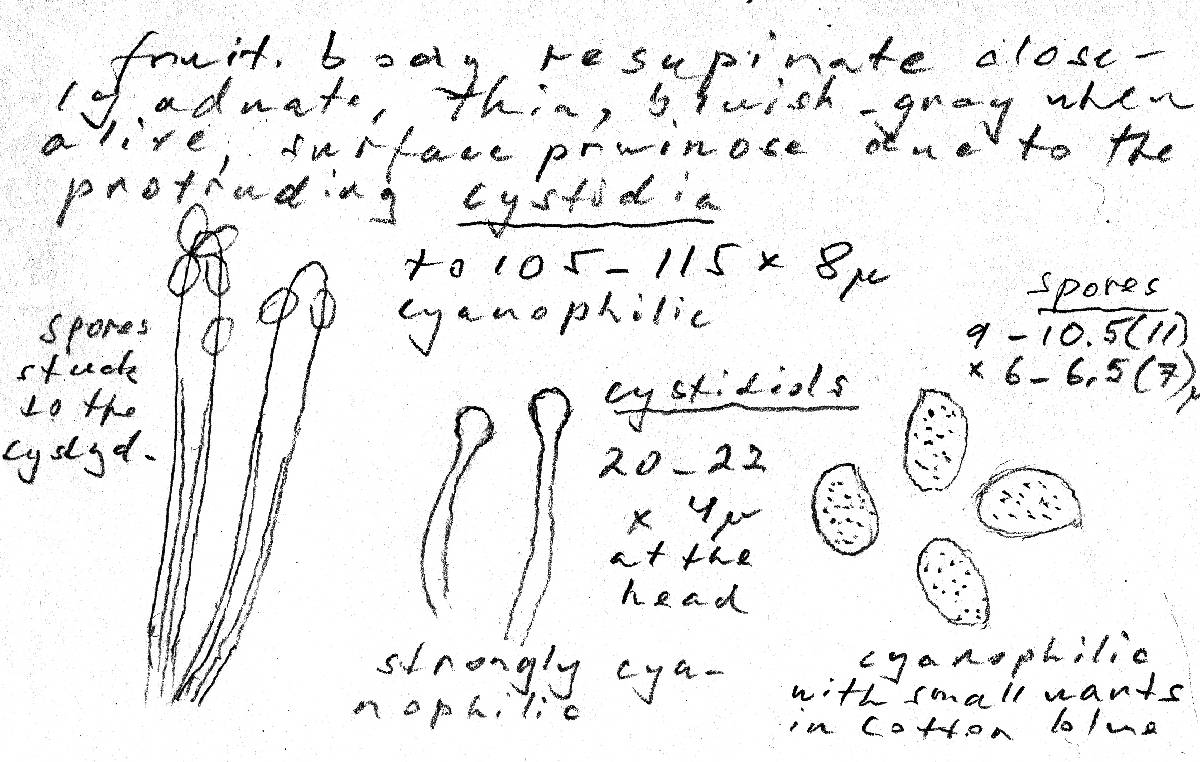 fruit. body resupinate close-
ly adnate, thin, bluish-gray when
alive, surface pruinose due to the
protruding cystidia
to 105-115 x 8µ
cyanophilic
spores
stuck
to the
cystyd.
cystidiols
20-22
x 4µ
at the
head
strongly cya-
nophilic
spores
9-10.5(11)
x 6-6.5(7)µ
cyanophilic
with small warts
in cotton blue